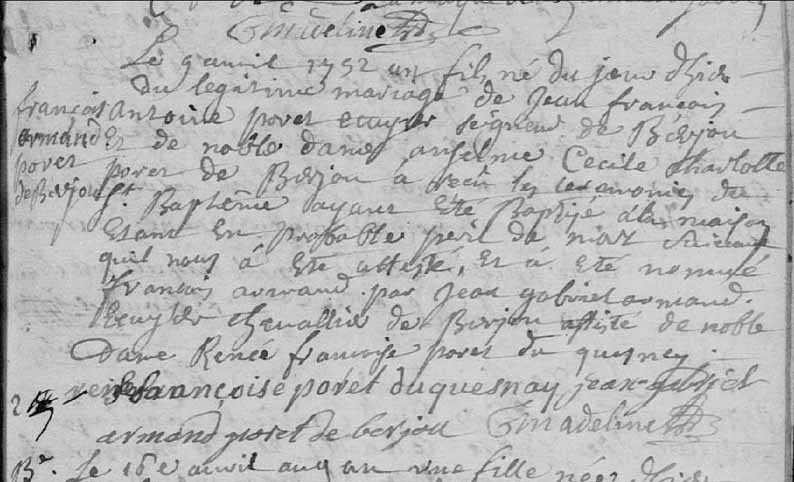 TMadeline
Le 9 avril 1752 un fils né du jour dhier
du legitime mariage de Jean francois
Antoine poret ecuyer seigneur de Berjou
Et de noble dame anselme Cecile charlotte
poret de Berjou à recu les ceremonies de
St Baptême ayant Eté Baptisé à la maison
Etant En probable peril de mort suivant
quil nous à Eté attesté, Et à Eté nommé
francois armand par Jean gabriel armand
Ecuyer chevallier de Berjou assisté de noble
Dame Renée francoise poret du quesney
françois
armand
poret
de Berjou
renée françoise poret duquesnay jean gabriel
armand poret de berjou TMadeline
2
Be. Le 16e avril aud an une fille née dhier